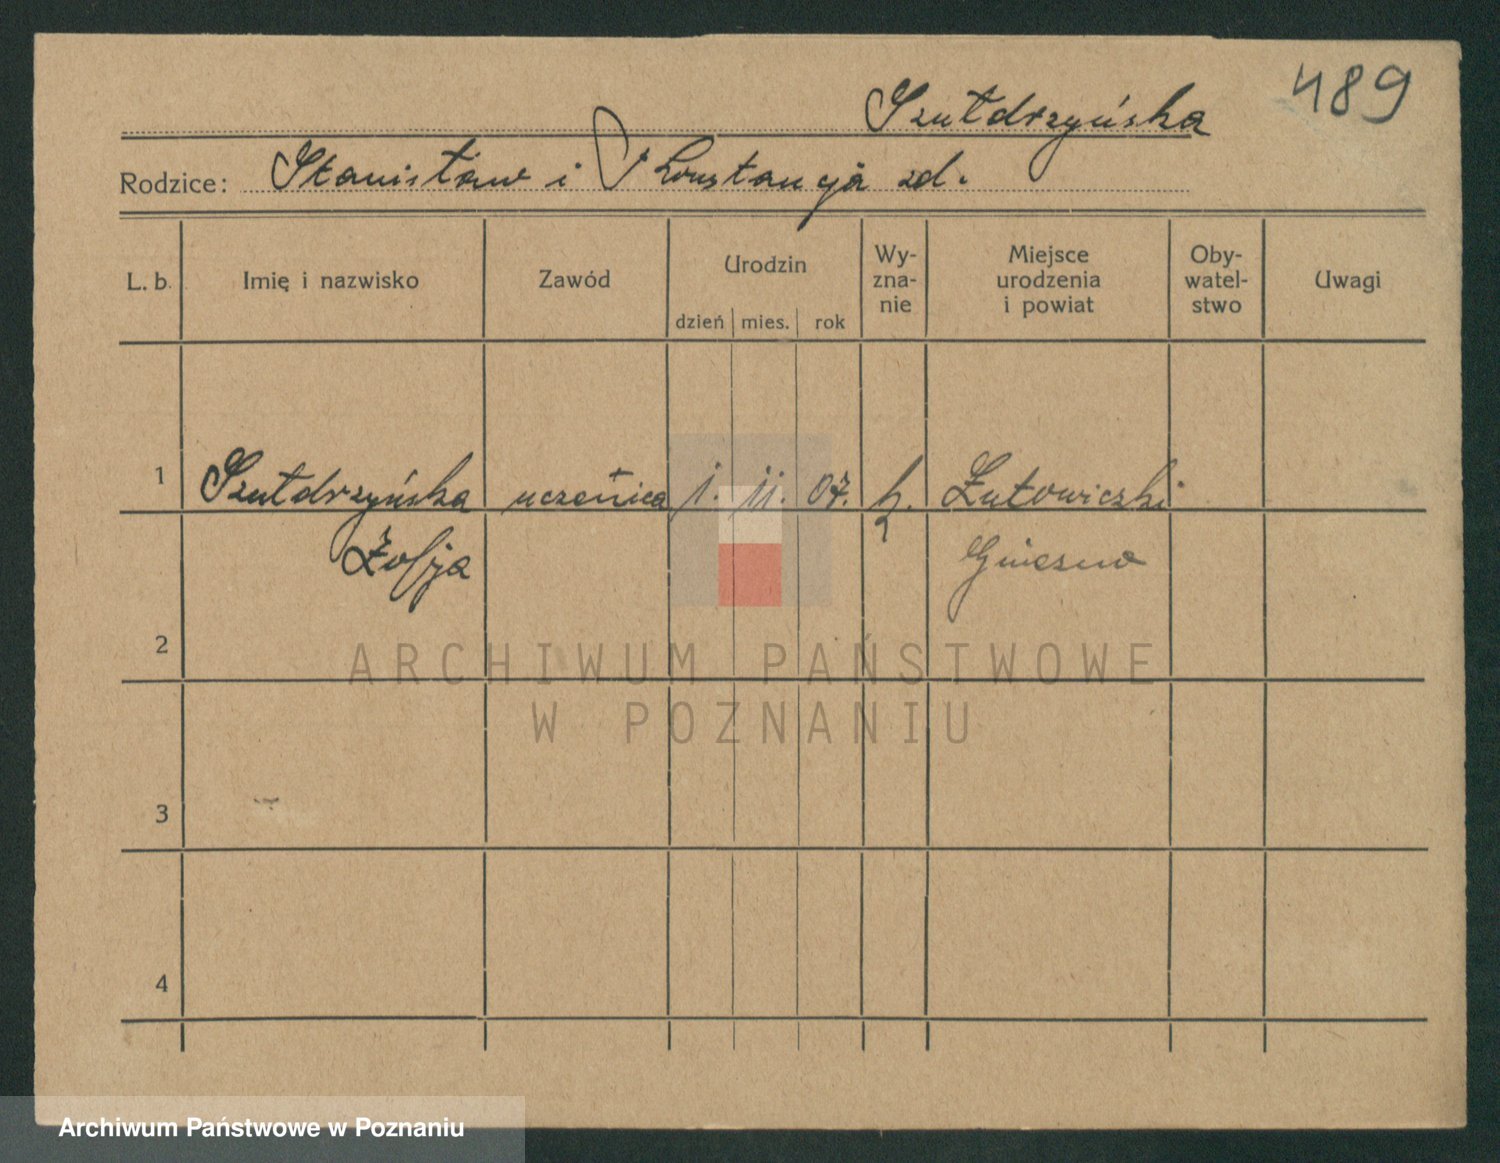 489
Szułdrzyńska
Rodzice: Stanisław i Konstancja zd.
L. b. Imię i nazwisko Zawód Urodzin dzień mies. rok Wy-zna-nie Miejsce urodzenia i powiat Oby-watel-stwo Uwagi
1 Szułdrzyńska uczenica 1. 11. 07. k.
Zofja Gniezno
2
3
4
ARCHIWUM PAŃSTWOWE
W POZNANIU
Archiwum Państwowe w Poznaniu